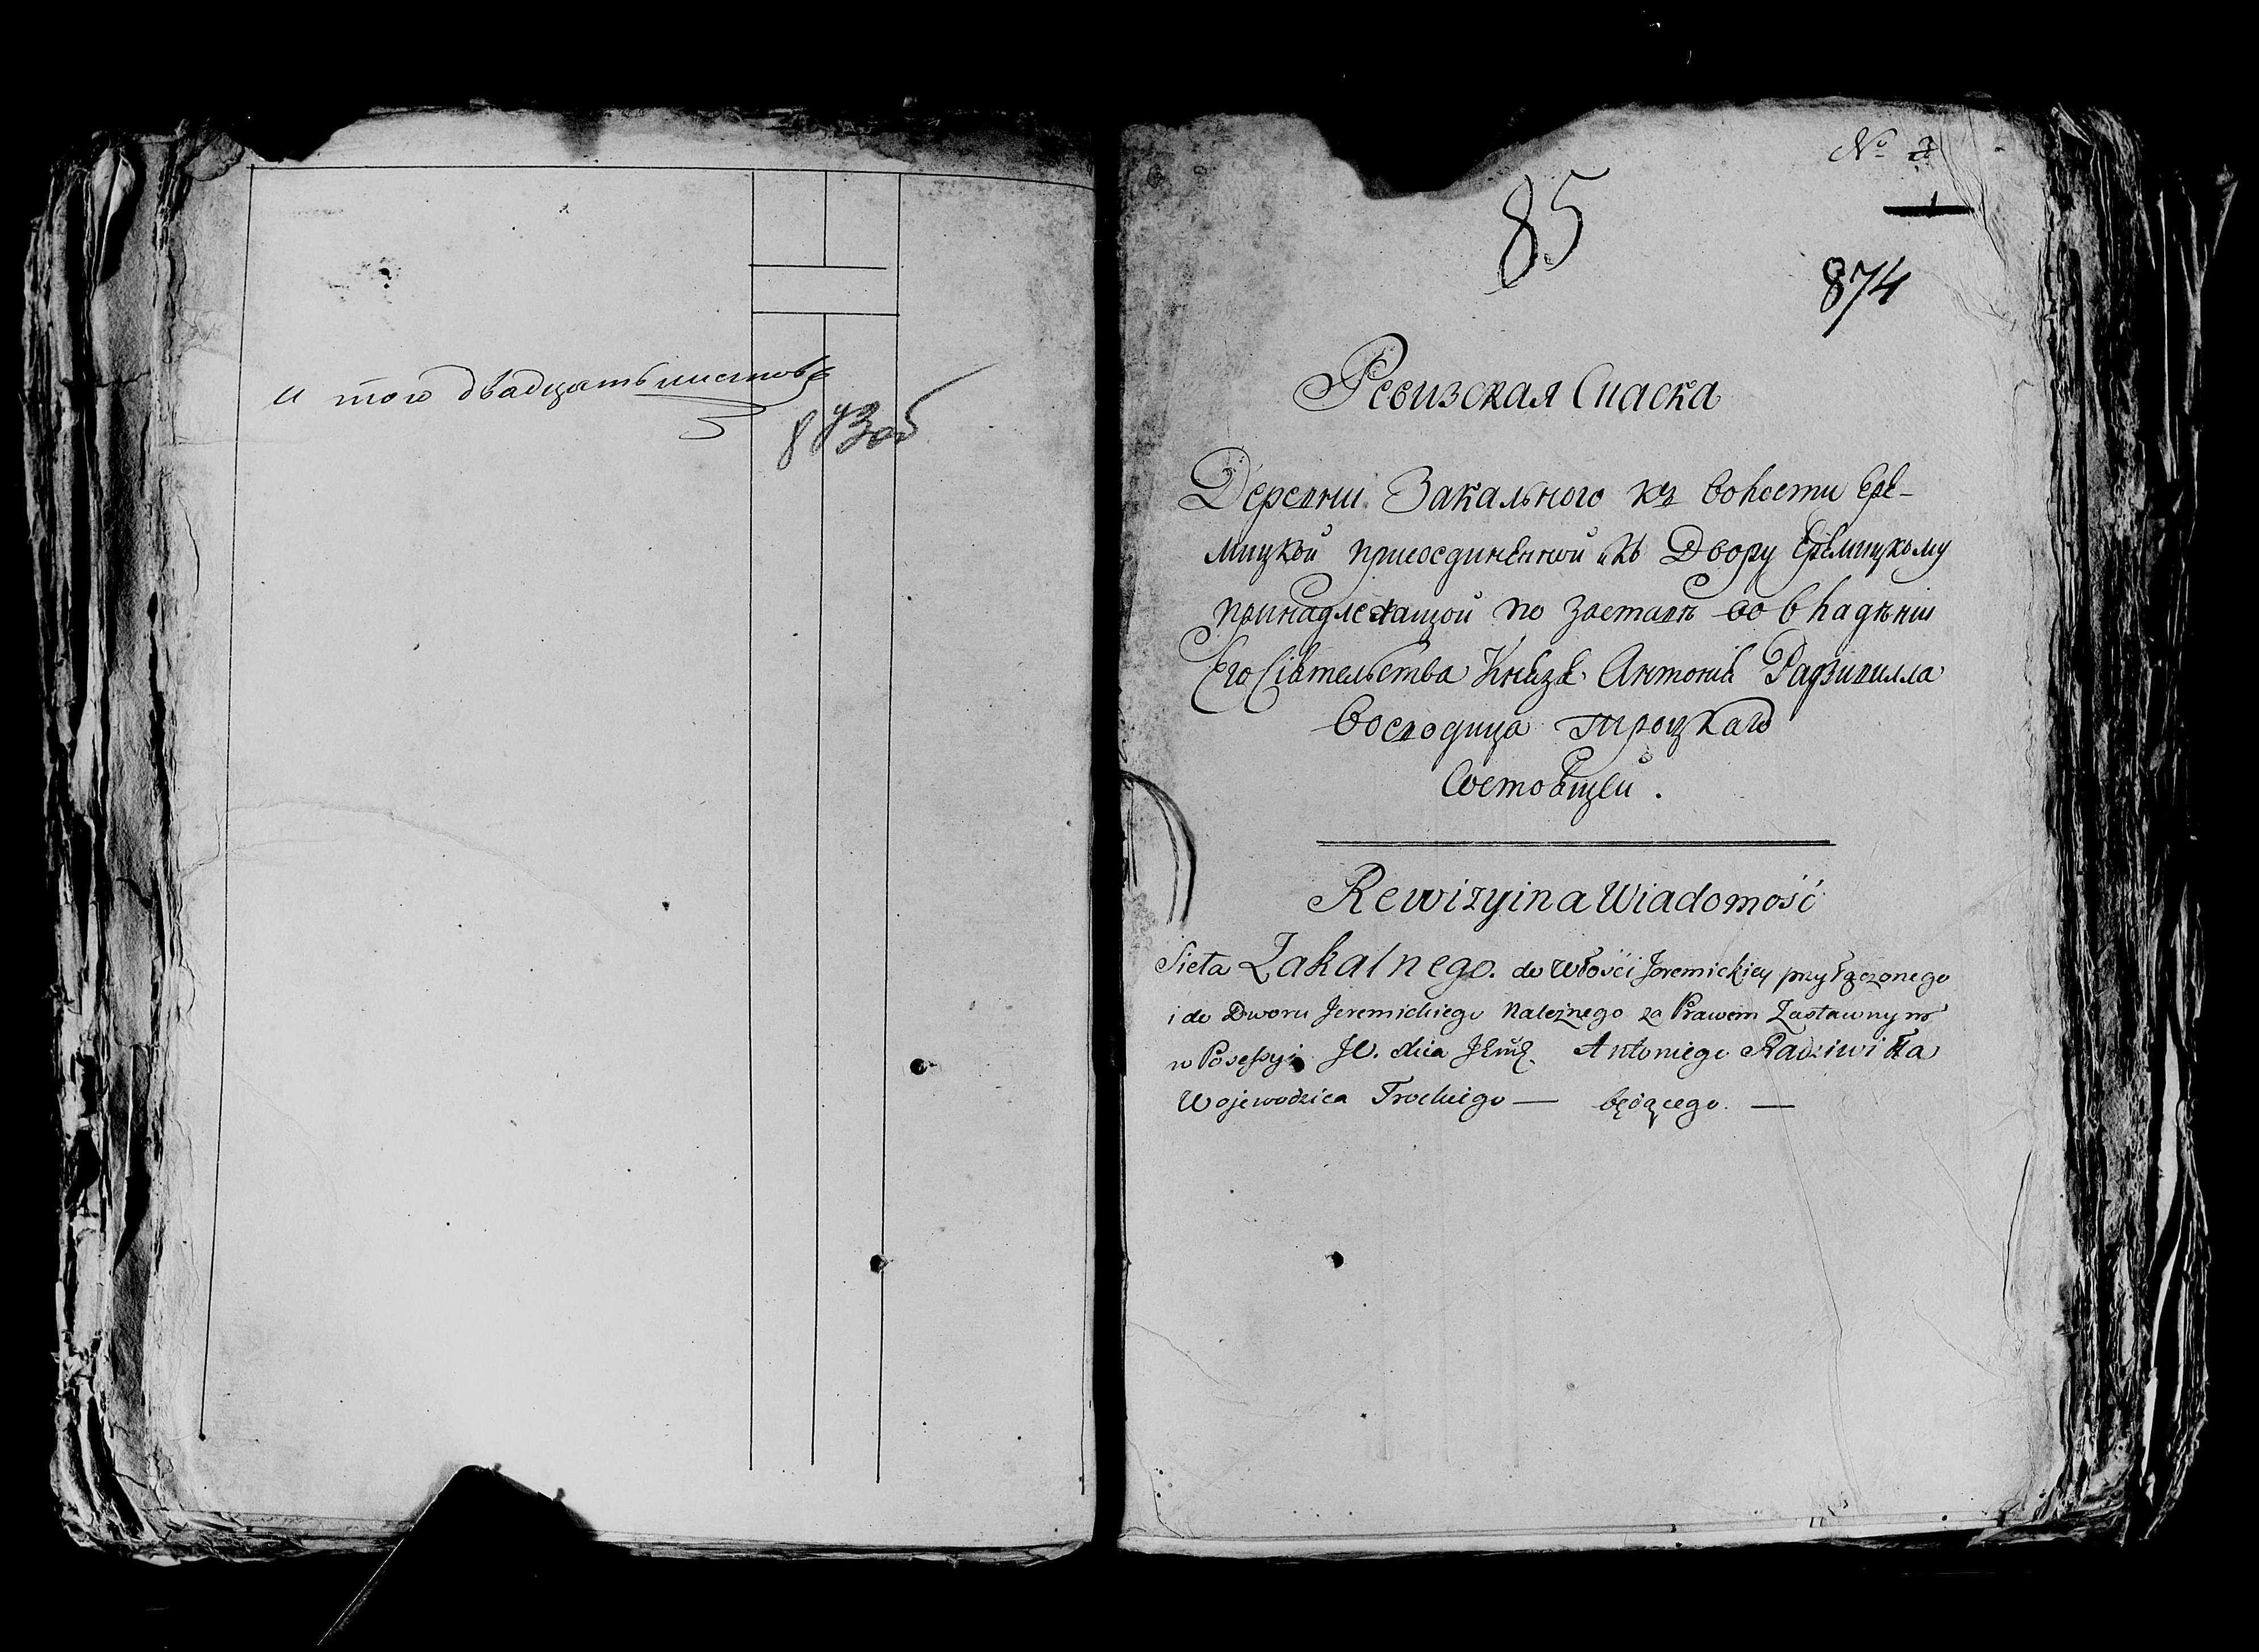 и того двадцать листовъ
873об
№ 3
1
85
874
Ревизская Сказка
Деревни Закального къ волости Ере-
мицкой присоединенной и къ Двору Еремицкому
принадлежащой по заставѣ во владѣнiи
Его Сiятельства Князя Антонiя Радзивилла
Воеводица Троцкаго
Состоящей.
Rewizyina Wiadomość
Sieła Zakalnego. do Włości Jeremickiey przyłączonego
i do Dworu Jeremickiego Należnego za Prawem Zastawnym
w Possessyi JO. Antoniego Radziwiłła
Wojewodzica Trockiego — będącego. —